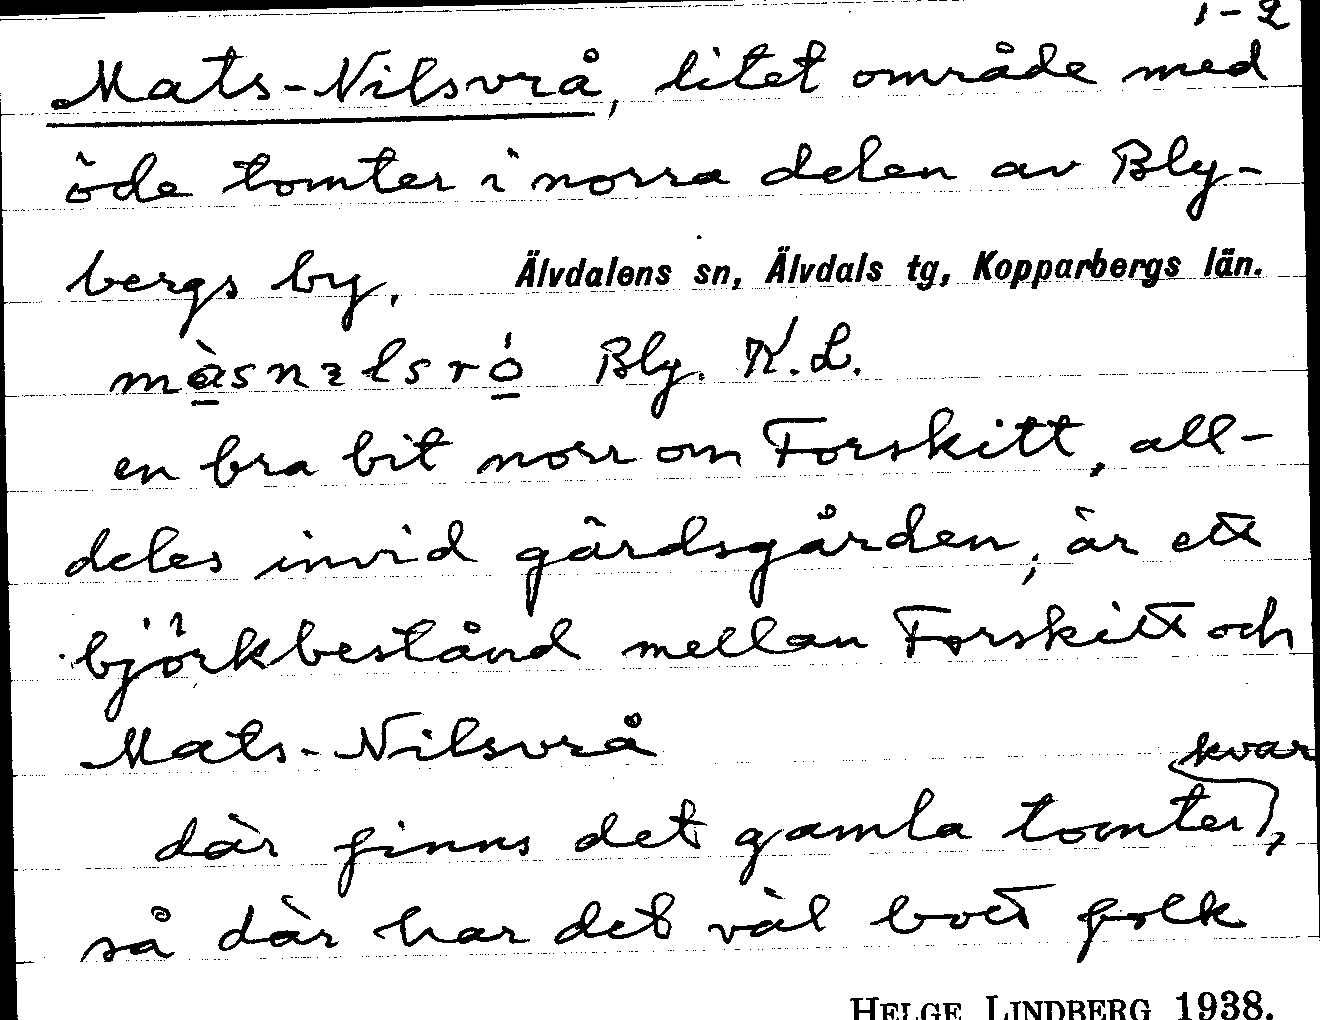 1-2
Mats-Nilsvrå, litet område med
öde tomter i norra delen av Bly-
bergs by, Älvdalens sn, Älvdals tg, Kopparbergs län.
Bly. K.L.
en bra bit norr om Forskitt, all-
deles invid gärdsgården, är ett
björkbestånd mellan Forskitt och
Mats-Nilsvrå
kvar
där finns det gamla tomter,
så där har det väl bott folk
HELGE LINDBERG 1938.